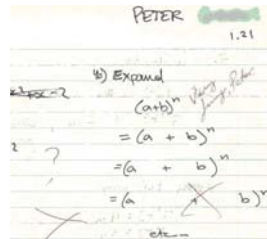 PETER
1.21
b) Expand
(a+b)ⁿ
Very funny, Peter.
= (a + b)ⁿ
?
=(a + b)ⁿ
=(a + b)ⁿ
etc...